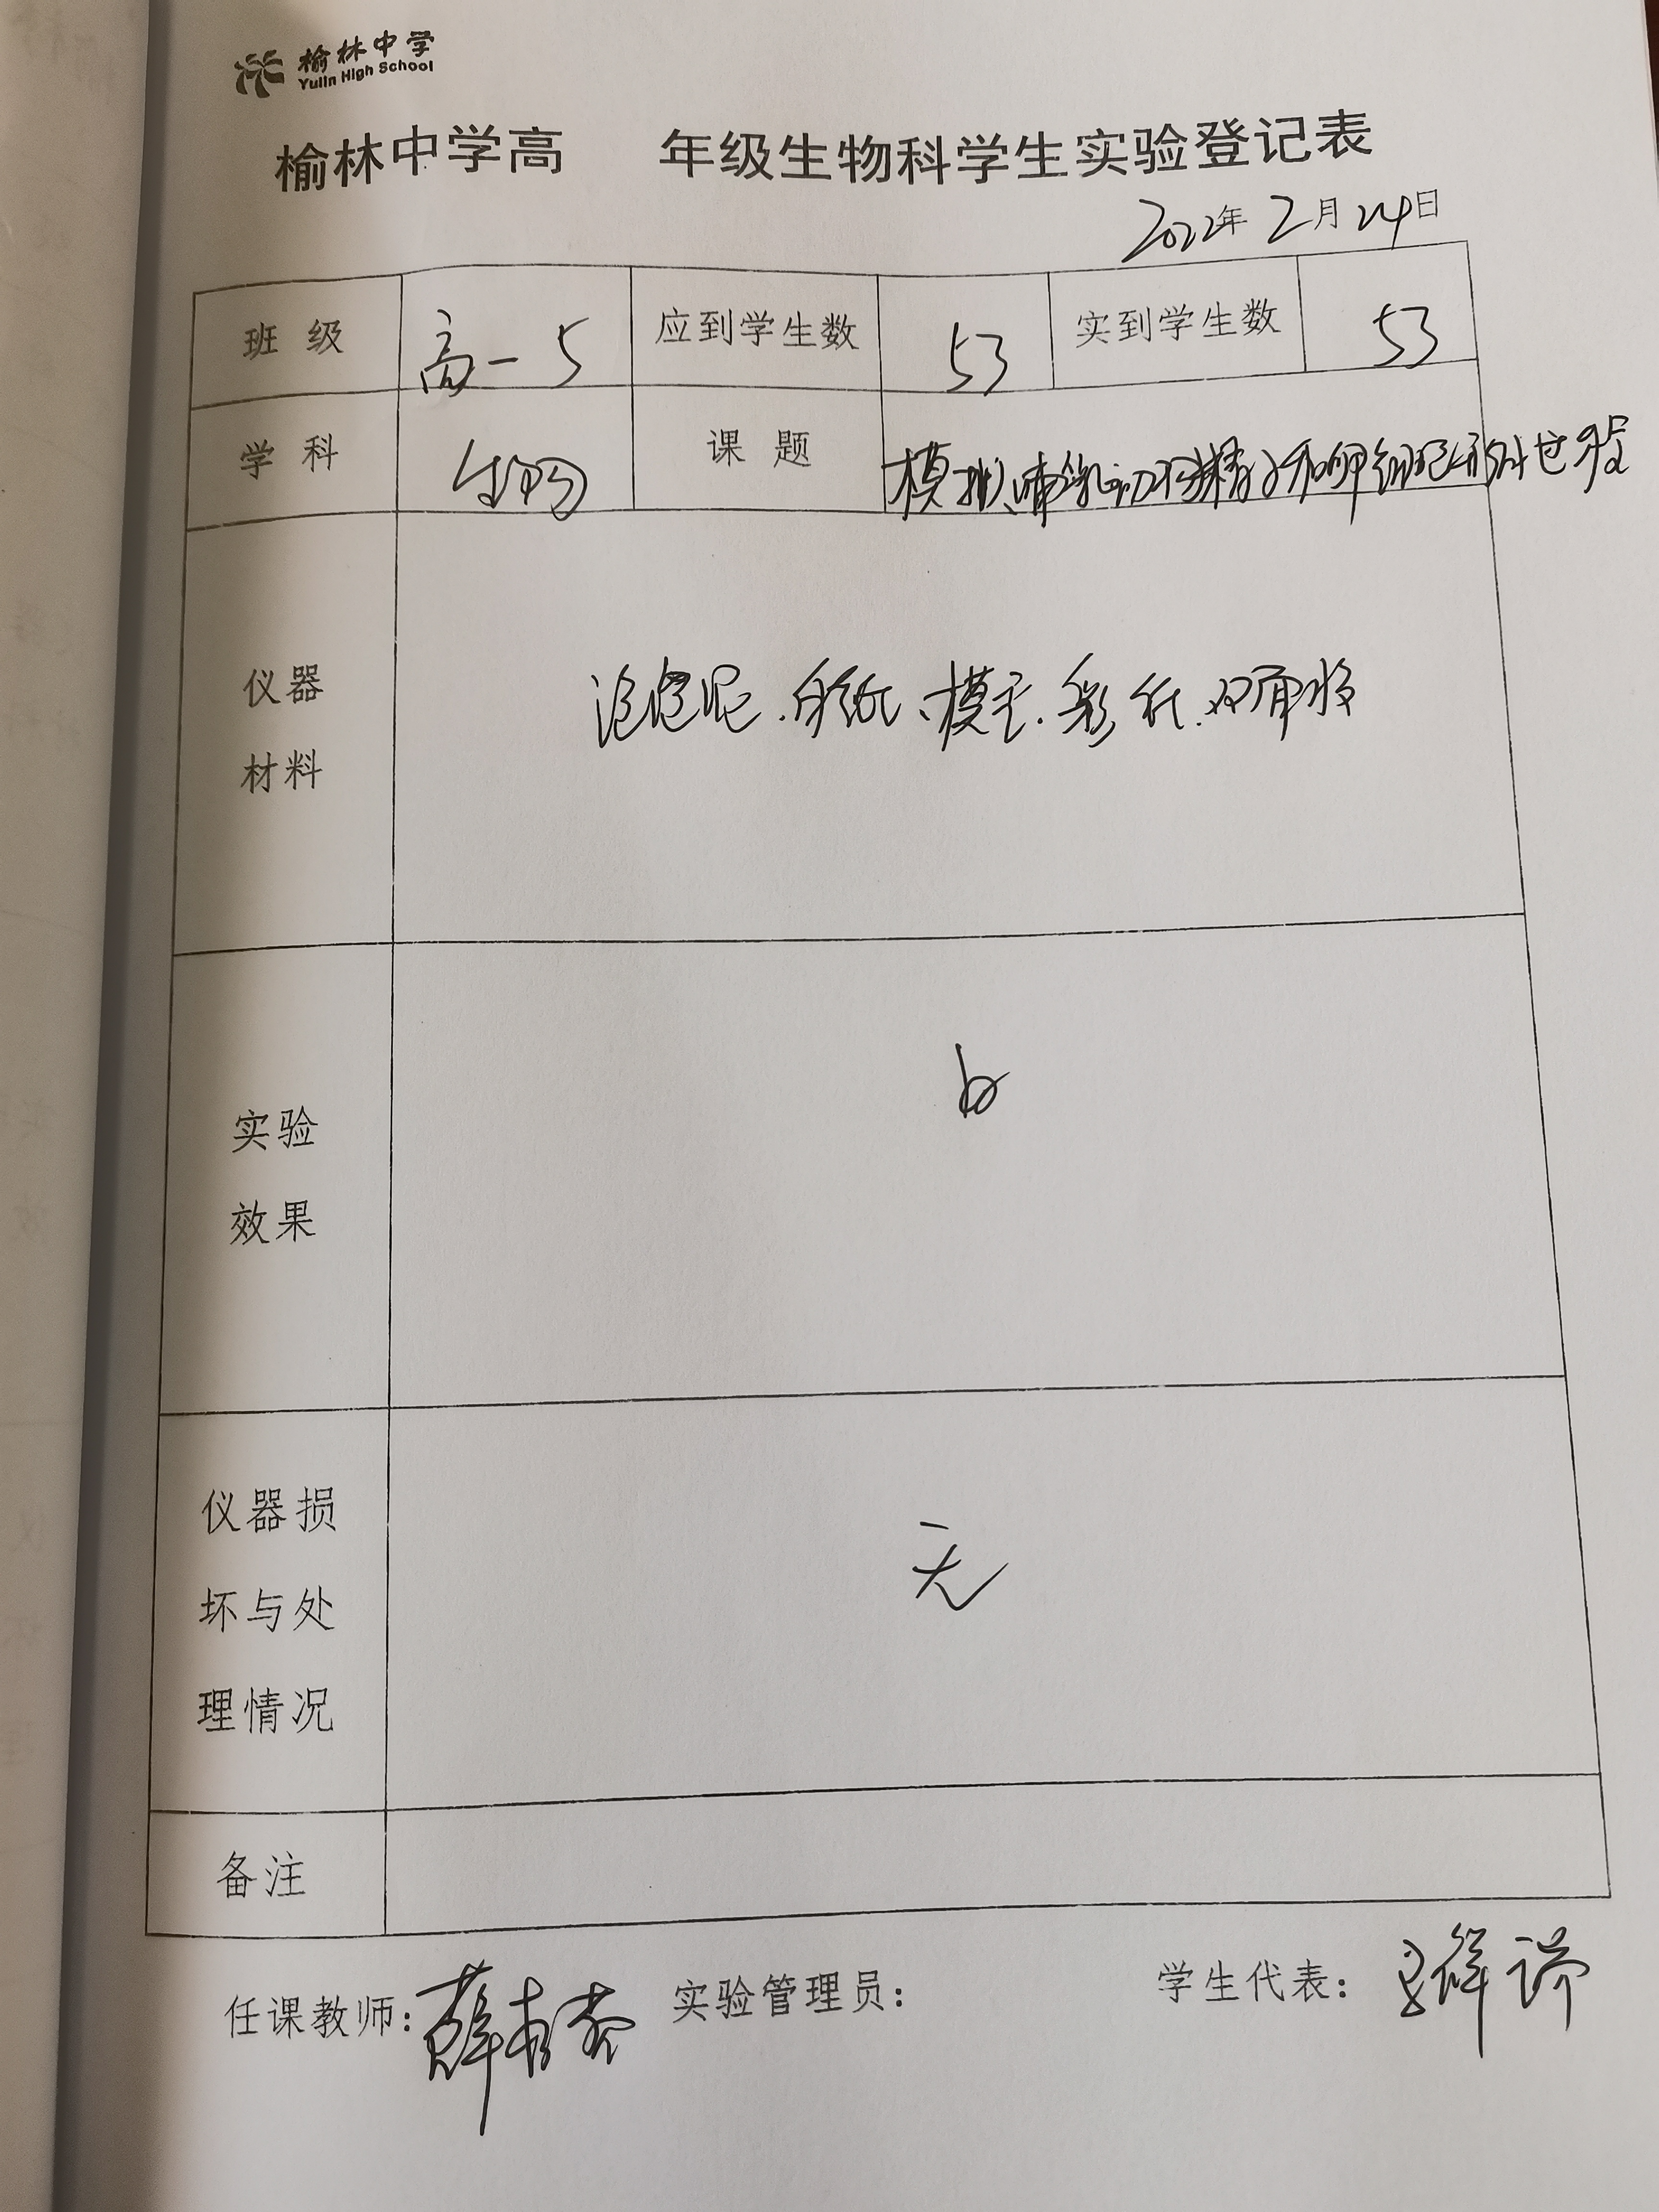 榆林中学
Yulin High School
榆林中学高 年级生物科学生实验登记表
2022年 2月 24日
班 级 高一5 应到学生数 53 实到学生数 53
学 科 生物 课 题 模拟哺乳动物精子和卵细胞
仪器
材料
泡泡泥、白纸、模式、彩纸、双面胶
实验
效果
b
仪器损
坏与处
理情况
无
备注
任课教师: 薛 实验管理员: 学生代表: